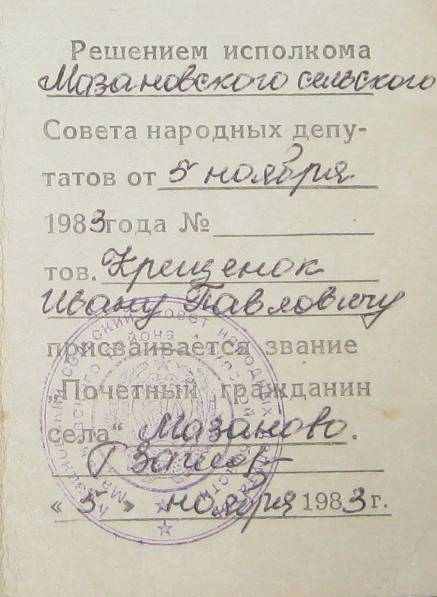 Решением исполкома
Мазановского сельского
Совета народных депу-
татов от 5 ноября
1983года №
тов. Крещенок
Ивану Павловичу
присваивается звание
„Почетный гражданин
села“ Мазаново.
« 5 » ноября 1983 г.